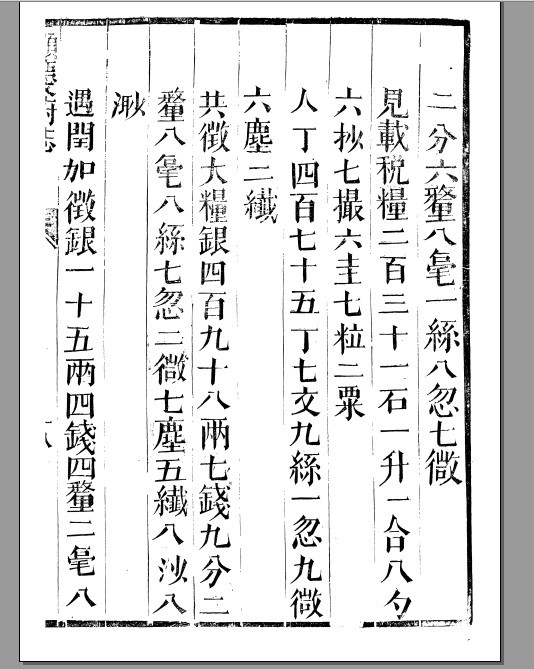 二分六釐八毫一絲八忽七微
見載稅糧二百三十一石一升一合八勺
六抄七撮六圭七粒二粟
人丁四百七十五丁七文九絲一忽九微
六塵二纖
共徵大糧銀四百九十八兩七錢九分二
釐八毫八絲七忽二微七塵五纖八沙八
渺
遇閏加徵銀一十五兩四錢四釐二毫八